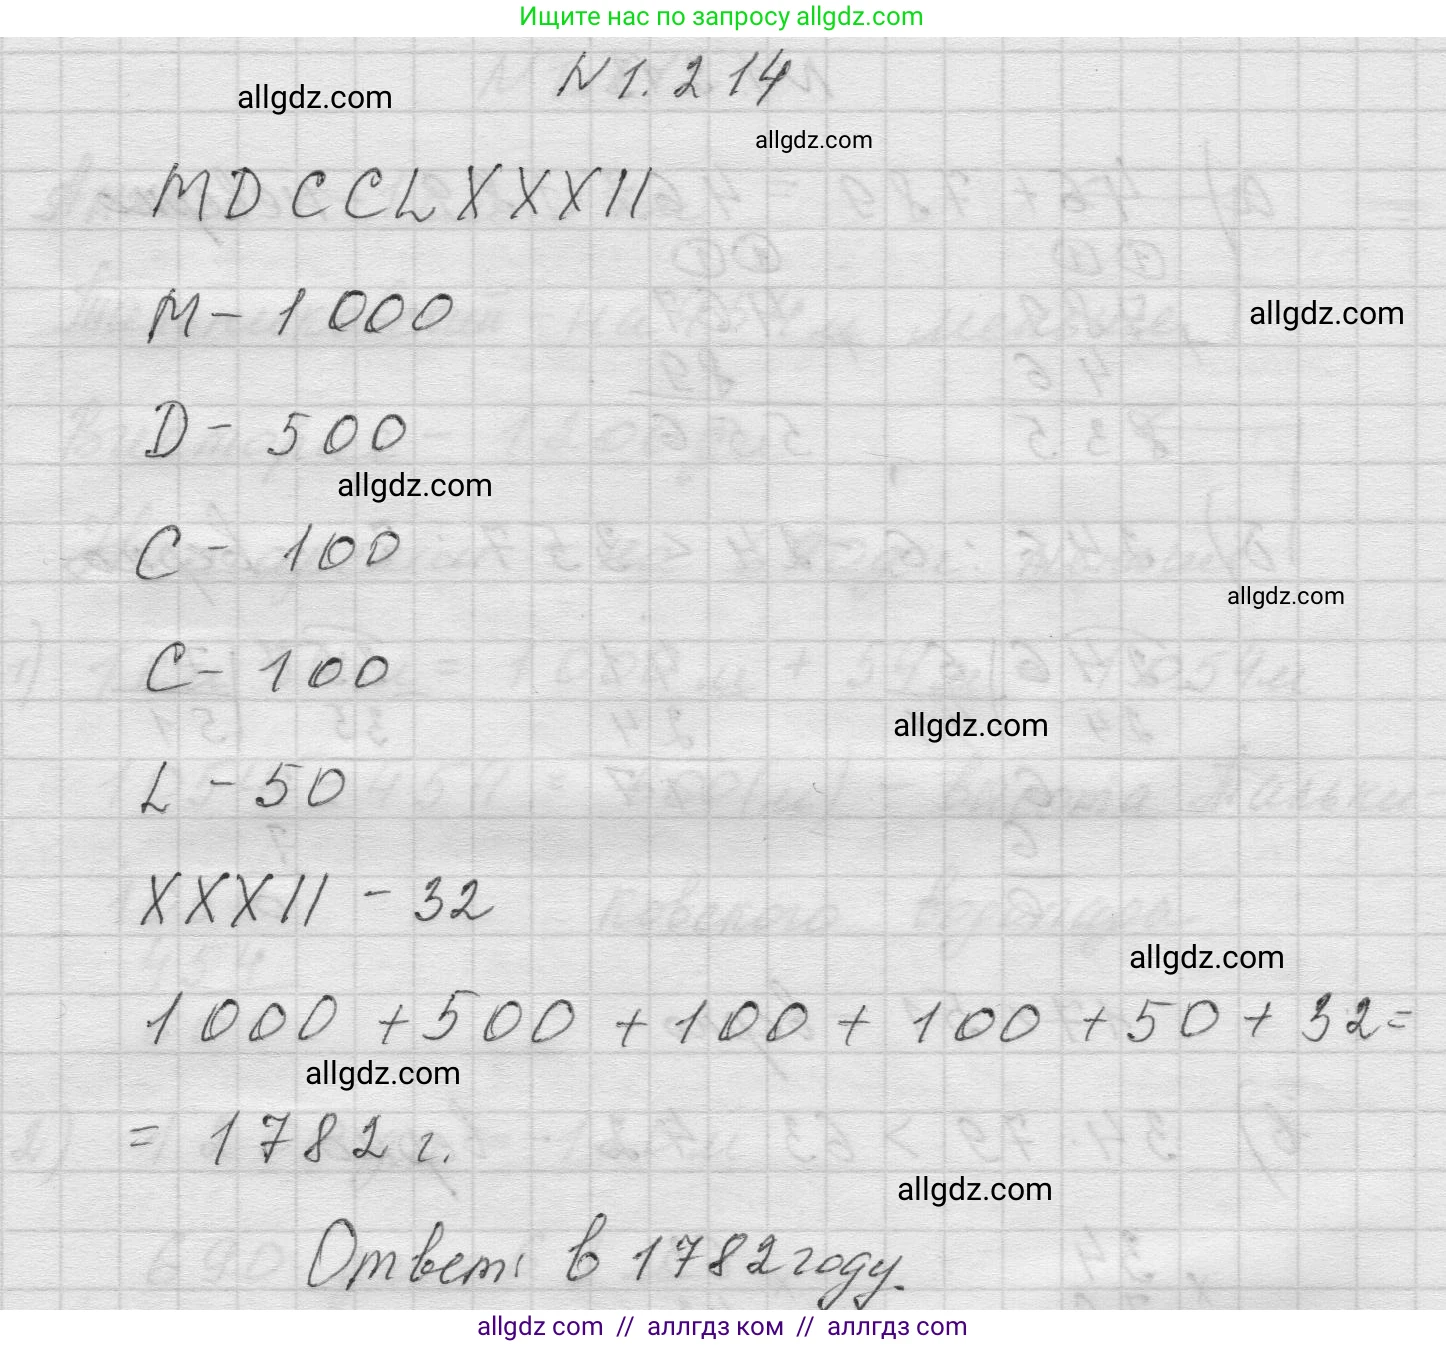 Ищите нас по запросу allgdz.com
N 1. 214
allgdz.com
allgdz.com
MDCCLXXXII
M - 1000
allgdz.com
D - 500
allgdz.com
C - 100
allgdz.com
C - 100
allgdz.com
L - 50
XXXII - 32
allgdz.com
1000 + 500 + 100 + 100 + 50 + 32 =
allgdz.com
= 1782 г.
allgdz.com
Ответ: в 1782 году.
allgdz com // аллгдз ком // аллгдз com